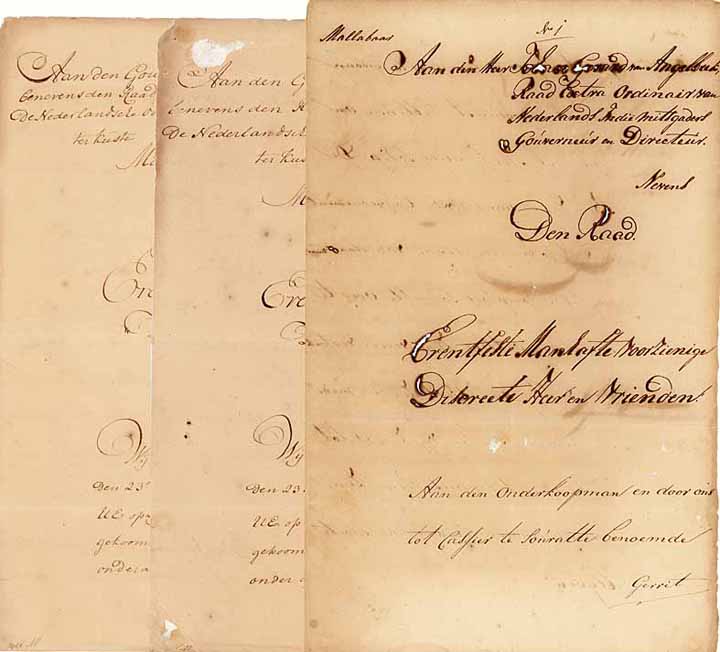 Aan den Gou
benevens den Raad
De Nederlandsche
ter kuste
M
Ere
Wij
den 23
UE op
gekom
onder
Aan den G
benevens den R
De Nederlandsch
ter kus
M
Ere
Wij
den 23
UE op
gekom
onder
No 1
Mallabaar
Aan den Heer van Angelbeek
Raad Extra Ordinair van
Nederlands Indie mitsgaders
Gouverneur en Directeur.
Nevens
Den Raad.
Erentfeste Manhafte Voorzienige
Discreete Heer en Vrienden!
Aan den Onderkoopman en door ons
tot Cassier te Souratte benoemde
Gerrit